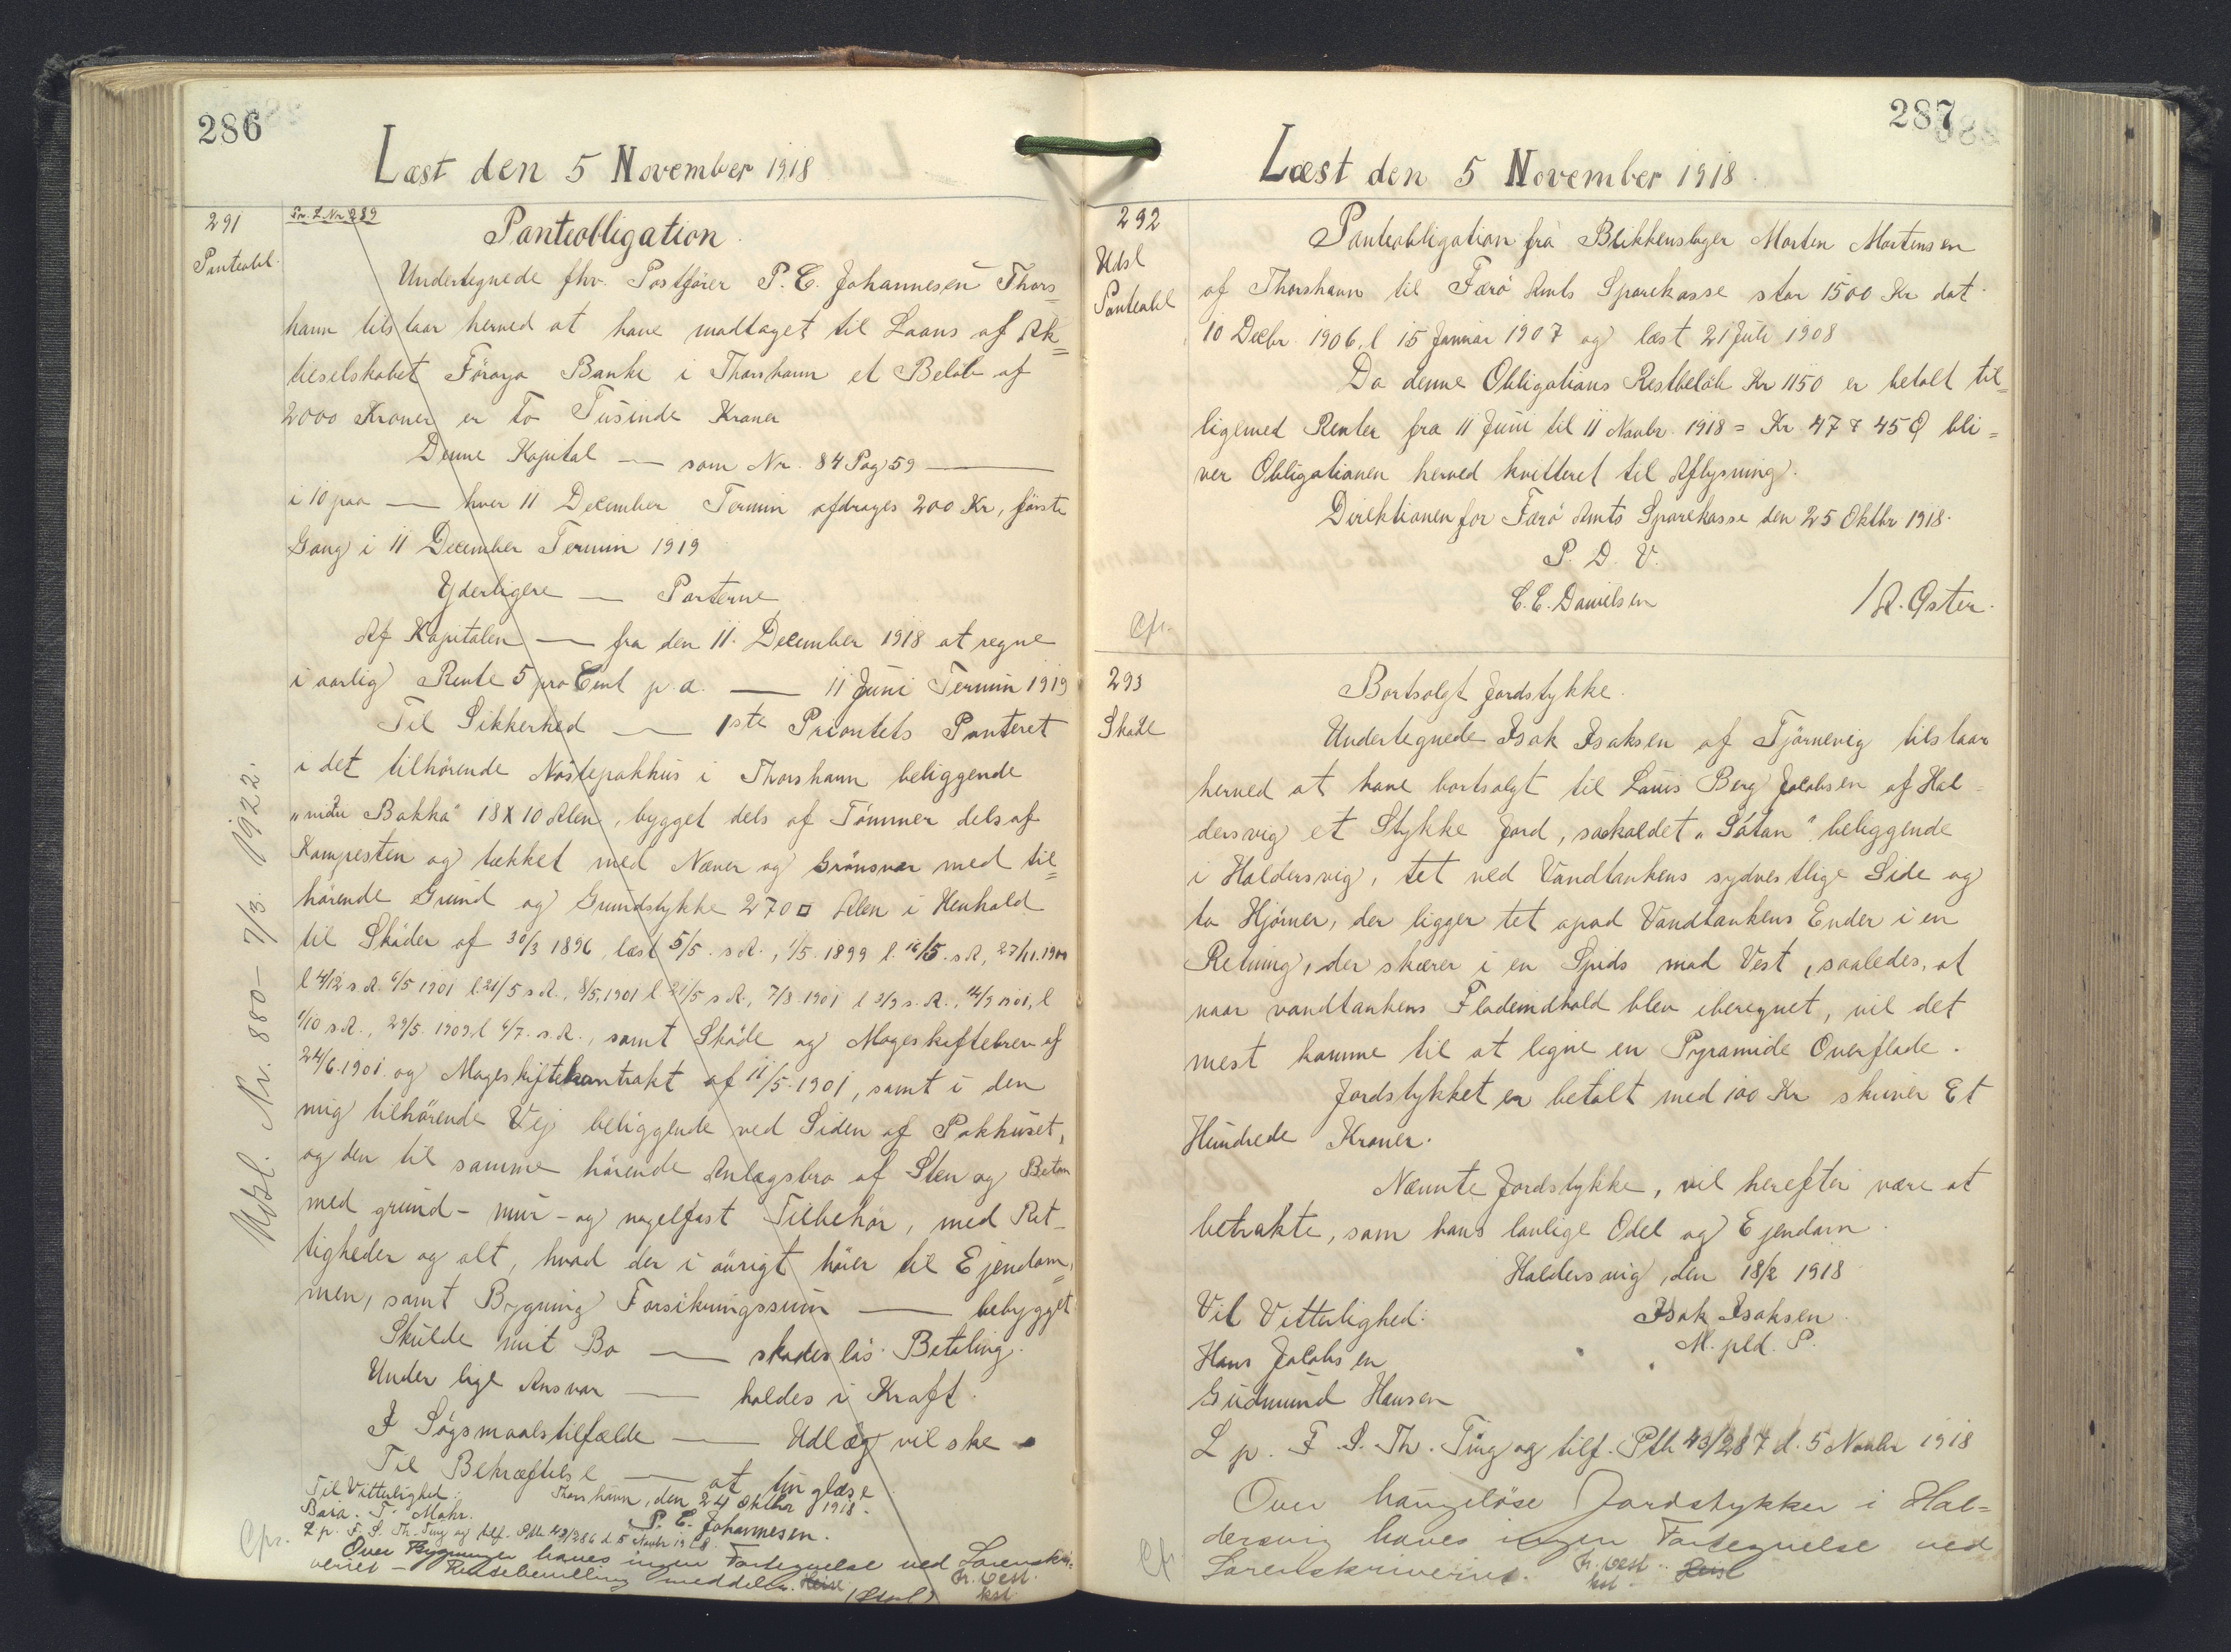 286
Læst den 5 November 1918
291
Pr. L. Nr 289
Panteobl.
Panteobligation.
Undertegnede fhv. Postfører P. C. Johannesen Thors=
havn tilstaar herved at have modtaget til Laans af Ak=
tieselskabet Föroya Banke i Thorshavn et Beløb af
2000 Kroner er To Tusinde Kroner
Denne Kapital — som Nr. 84 Pag 59 —
i 10 paa — hver 11 December Termin afdrages 200 Kr, første
Gang i 11 December Termin 1919
Yderligere — Parterne
Af Kapitalen — fra den 11. December 1918 at regne
i aarlig Rente 5 pro Cent p. a. — 11 Juni Termin 1919
Til Sikkerhed — 1ste Prioritets Panteret
i det tilhørende Nöstepakhus i Thorshavn beliggende
Bakka" 18 X 10 Alen, bygget dels af Tømmer dels af
Kampesten og tækket med Næver og Grønsvær med til=
hørende Grund og Grundstykke 270 □ Alen i Henhold
til Skøder af 30/3 1896, læst 5/5 s. A., 1/5 1899 l. 16/5 s. A, 27/11. 1900
l 4/12 s. A. 6/5 1901 l. 21/5 s. A., 8/5 1901 l 21/5 s. A, 7/8 1901 l 3/9 s. A., 14/9 1901, l
1/10 s. A., 29/5. 1909, l 6/7. s. A., samt Skøde og Mageskiftebrev af
24/6. 1901. og Mageskiftekontrakt af 11/5. 1901, samt i den
mig tilhørende Vej beliggende ved Siden af Pakhuset,
og den til samme hørende Anlægsbro af Sten og Beton
med grund- mur- og nagelfast Tilbehør, med Ret-
tigheder og alt, hvad der i øvrigt hører til Ejendom=
men, samt Bygning Forsikringssum — bebygget
Skulde mit Bo — skadesløs Betaling.
Under lige Ansvar — holdes i Kraft.
I Søgsmaalstilfælde — Udlæg vil ske
Til Bekræftelse — at tinglæse
Thorshavn, den 24 Oktbr 1918.
Til Vitterlighed:
P. C. Johannesen.
T. Mohr.
L p. F. S. Th. Ting og tilf. Ptb. 43/286 d. 5 Novbr 1918.
Over Bygninger haves ingen Fortegnelse ved Sorenskri=
veriet — meddelt.
Cfr.
kst
Udsl. Nr. 880 - 7/3. 1922.
287
Læst den 5 November 1918.
292
Udsl
Panteobl
Panteobligation fra Blikkenslager Morten Mortensen
af Thorshavn til Færø Amts Sparekasse stor 1500 Kr dat.
10 Decbr. 1906, l 15 Januar 1907 og læst 21 Juli 1908
Da denne Obligations Restbeløb Kr 1150 er betalt til=
ligemed Renter fra 11 Juni til 11 Novbr. 1918 = Kr 47 & 45 Ø bli=
ver Obligationen herved kvitteret til Aflysning.
Direktionen for Færø Amts Sparekasse den 25 Oktbr 1918.
P. D. V.
C. C. Danielsen / R. Øster.
Cfr.
293
Skøde
Bortsolgt Jordstykke.
Undertegnede Isak Isaksen af Tjørnevig tilstaar
herved at have bortsolgt til Louis Berg Jacobsen af Hal=
dersvig et Stykke Jord, saakaldet „Sátan" beliggende
i Haldersvig, tet ved Vandtankens sydvestlige Side og
to Hjørner, der ligger tet opad Vandtankens Ender i en
Retning, der skærer i en Spids mod Vest, saaledes, at
naar vandtankens Fladeindhold blev iberegnet, vil det
mest komme til at ligne en Pyramide Overflade.
Jordstykket er betalt med 100 Kr skriver Et
Hundrede Kroner.
Nævnte Jordstykke, vil herefter være at
betrakte, som hans lovlige Odel og Ejendom.
Haldersvig, den 18/2 1918
Vil Vitterlighed:
Isak Isaksen
M. p̃ld. P.
Hans Jacobsen
Gudmund Hansen
L p. F. S. Th. Ting og tilf. Ptb 43/287 d. 5 Novbr 1918
Over haugeløse Jordstykker i Hal=
dersvig haves ingen Fortegnelse ved
Sorenskriveriet.
kst